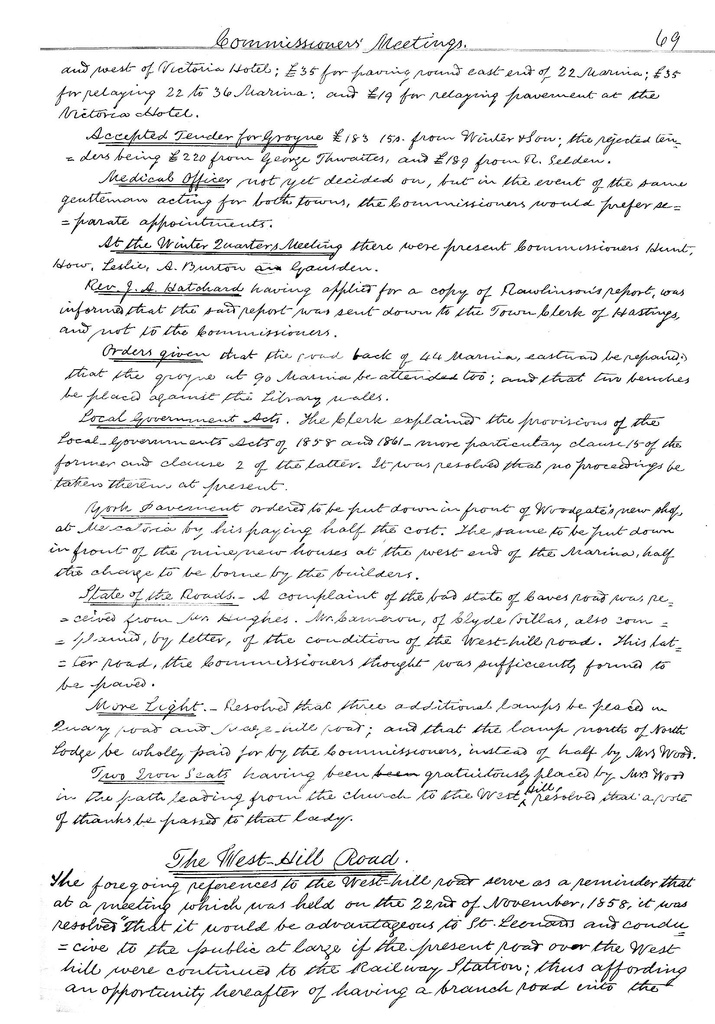 Commissioners' Meetings. 69
and west of Victoria Hotel; £35 for paving round east end of 22 Marina; £35
for relaying 22 to 36 Marina; and £19 for relaying pavement at the
Victoria Hotel.
Accepted Tender for Groyne £183 15s. from Winter & Son; the rejected ten-
=ders being £220 from George Thwaites, and £189 from R. Selden.
Medical Officer not yet decided on, but in the event of the same
gentleman acting for both towns, the Commissioners would prefer se=
=parate appointments.
At the Winter Quarters Meeting there were present Commissioners Hunt,
How, Leslie, A. Burton Gausden.
Rev. J. A. Hatchard having applied for a copy of Rawlinson's report, was
informed that the said report was sent down to the Town Clerk of Hastings,
and not to the Commissioners.
Orders given that the road back of 44 Marina, eastward be repaired;
that the groyne at 90 Marina be attended too; and that two benches
be placed against the Library walls.
Local Government Acts. The Clerk explained the provisions of the
Local-Governments Acts of 1858 and 1861 - more particulary clause 15 of the
former and clause 2 of the latter. It was resolved that no proceedings be
taken therein at present.
York Pavement ordered to be put down in front of Woodgate's new shop,
at Mercatoria by his paying half the cost. The same to be put down
in front of the nine new houses at the west end of the Marina, half
the charge to be borne by the builders.
State of the Roads. - A complaint of the bad state of Caves road was re=
=ceived from Mr. Hughes. Mr. Cameron, of Clyde Villas, also com=
=plained, by letter, of the condition of the West-hill road. This lat=
=ter road, the Commissioners thought was sufficiently formed to
be paved.
More Light. - Resolved that three additional lamps be placed in
Quary road and -hill road; and that the lamp north of North
Lodge be wholly paid for by the Commissioners, instead of half by Mrs Wood.
Two Iron Seats having been been gratuitously placed by Mrs Wood
in the path leading from the church to the West Hill, resolved that a vote
of thanks be passed to that lady.
The West-Hill Road.
The foregoing references to the West-hill road serve as a reminder that
at a meeting which was held on the 22nd of November, 1858, it was
resolved "that it would be advantageous to St. Leonards and condu=
=cive to the public at large if the present road over the West
hill were continued to the Railway Station; thus affording
an opportunity hereafter of having a branch road into the